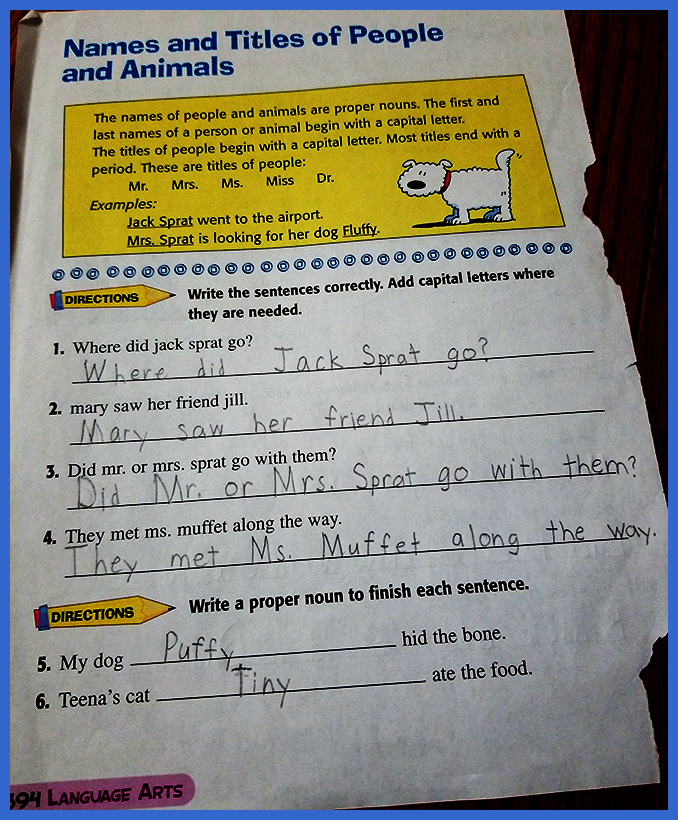 Names and Titles of People
and Animals
The names of people and animals are proper nouns. The first and
last names of a person or animal begin with a capital letter.
The titles of people begin with a capital letter. Most titles end with a
period. These are titles of people:
Mr. Mrs. Ms. Miss Dr.
Examples:
Jack Sprat went to the airport.
Mrs. Sprat is looking for her dog Fluffy.
DIRECTIONS Write the sentences correctly. Add capital letters where
they are needed.
1. Where did jack sprat go?
Where did Jack Sprat go?
2. mary saw her friend jill.
Mary saw her friend Jill.
3. Did mr. or mrs. sprat go with them?
Did Mr. or Mrs. Sprat go with them?
4. They met ms. muffet along the way.
They met Ms. Muffet along the way.
DIRECTIONS Write a proper noun to finish each sentence.
5. My dog Puffy hid the bone.
6. Teena's cat Tiny ate the food.
LANGUAGE ARTS